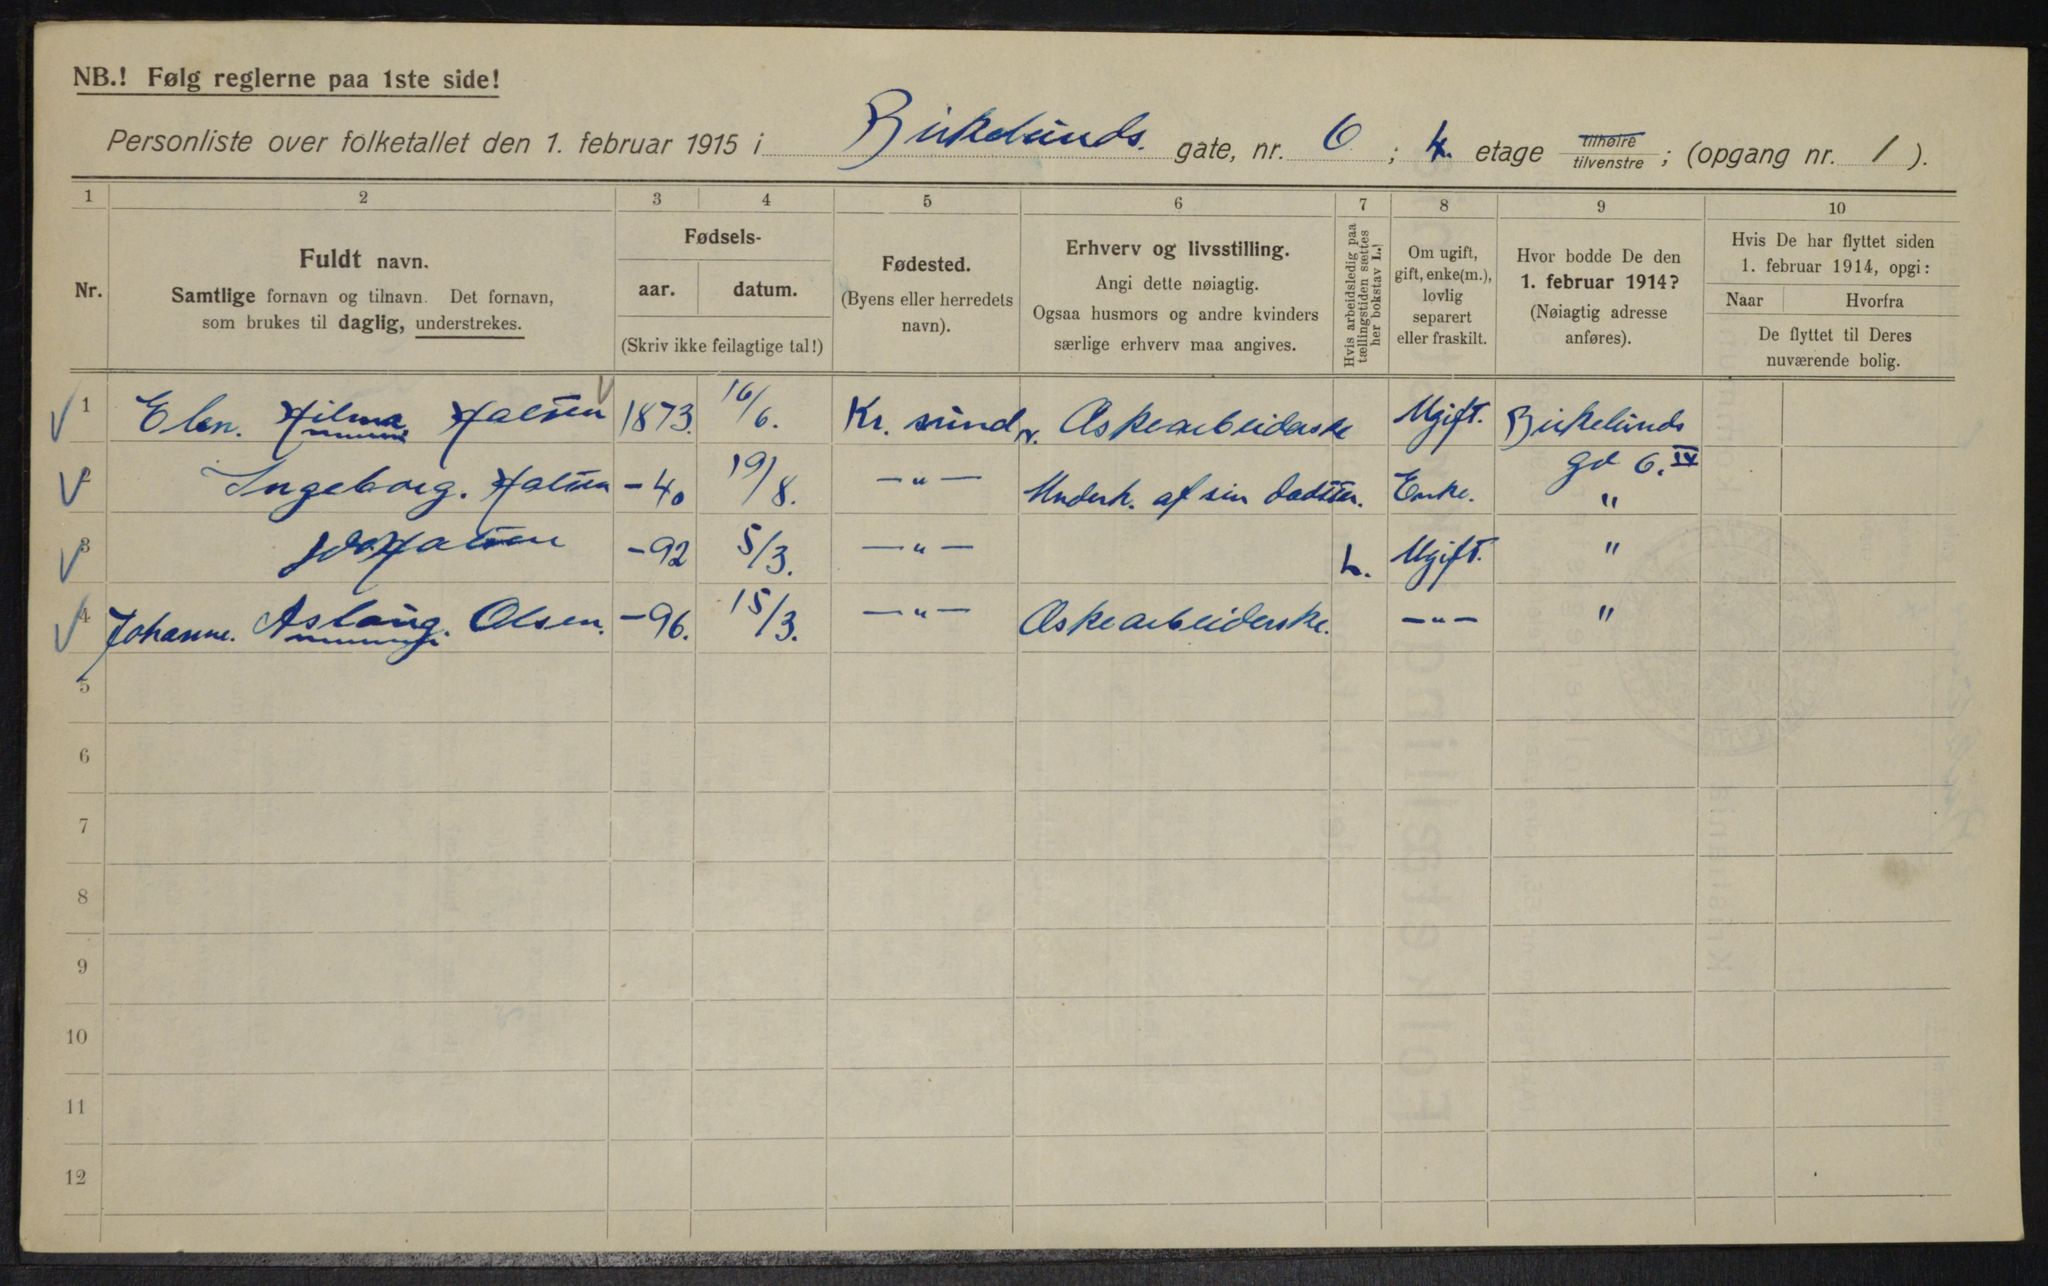 NB.! Følg reglerne paa 1ste side!
Personliste over folketallet den 1. februar 1915 i Birkelunds. gate, nr. 6 ; 4. etage tilhøire tilvenstre ; (opgang nr. 1 ).
1 2 3 4 5 6 7 8 9 10
Nr.
Fuldt navn.
Samtlige fornavn og tilnavn. Det fornavn,
som brukes til daglig, understrekes.
Fødsels-
aar. datum.
(Skriv ikke feilagtige tal!)
Fødested.
(Byens eller herredets
navn).
Erhverv og livsstilling.
Angi dette nøiagtig.
Ogsaa husmors og andre kvinders
særlige erhverv maa angives.
Hvis arbeidsledig paa
tællingstiden sættes
her bokstav L.!
Om ugift,
gift, enke(m.),
lovlig
separert
eller fraskilt.
Hvor bodde De den
1. februar 1914?
(Nøiagtig adresse
anføres).
Hvis De har flyttet siden
1. februar 1914, opgi:
Naar Hvorfra
De flyttet til Deres
nuværende bolig.
1 Elen. Hilma. Halsen 1873. 16/6. Kr. sund N. Æskearbeiderske Ugift. Birkelunds
gd 6. IV
2 Ingeborg. Halsen -40 19/8. -"- Underh. af sin dadtter. Enke. "
3 Halsen -92 5/3. -"- L. Ugift. "
4 Johanne. Aslaug. Olsen. -96. 15/3. -"- Æskearbeiderske. -"- "
5
6
7
8
9
10
11
12